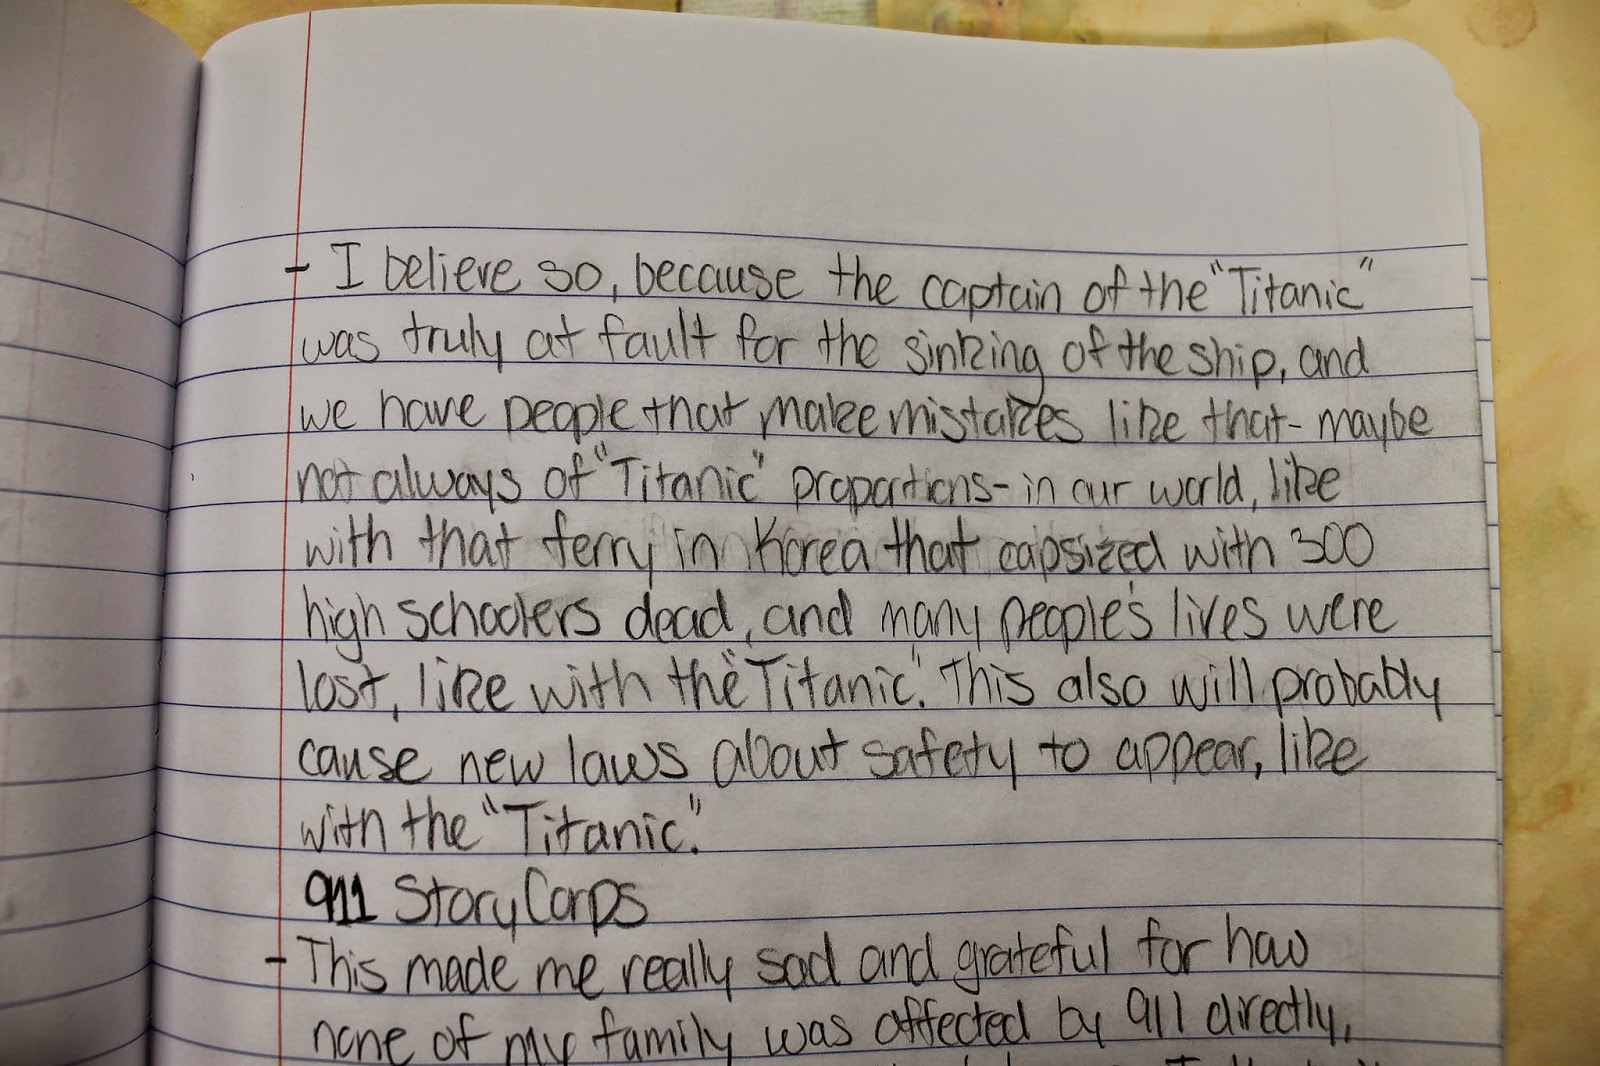 - I believe so, because the captain of the "Titanic"
was truly at fault for the sinking of the ship, and
we have people that make mistakes like that- maybe
not always of "Titanic" proportions- in our world, like
with that ferry in Korea that capsized with 300
high schoolers dead, and many people's lives were
lost, like with the "Titanic". This also will probably
cause new laws about safety to appear, like
with the "Titanic."
911 StoryCorps
- This made me really sad and grateful for how
none of my family was affected by 911 directly.